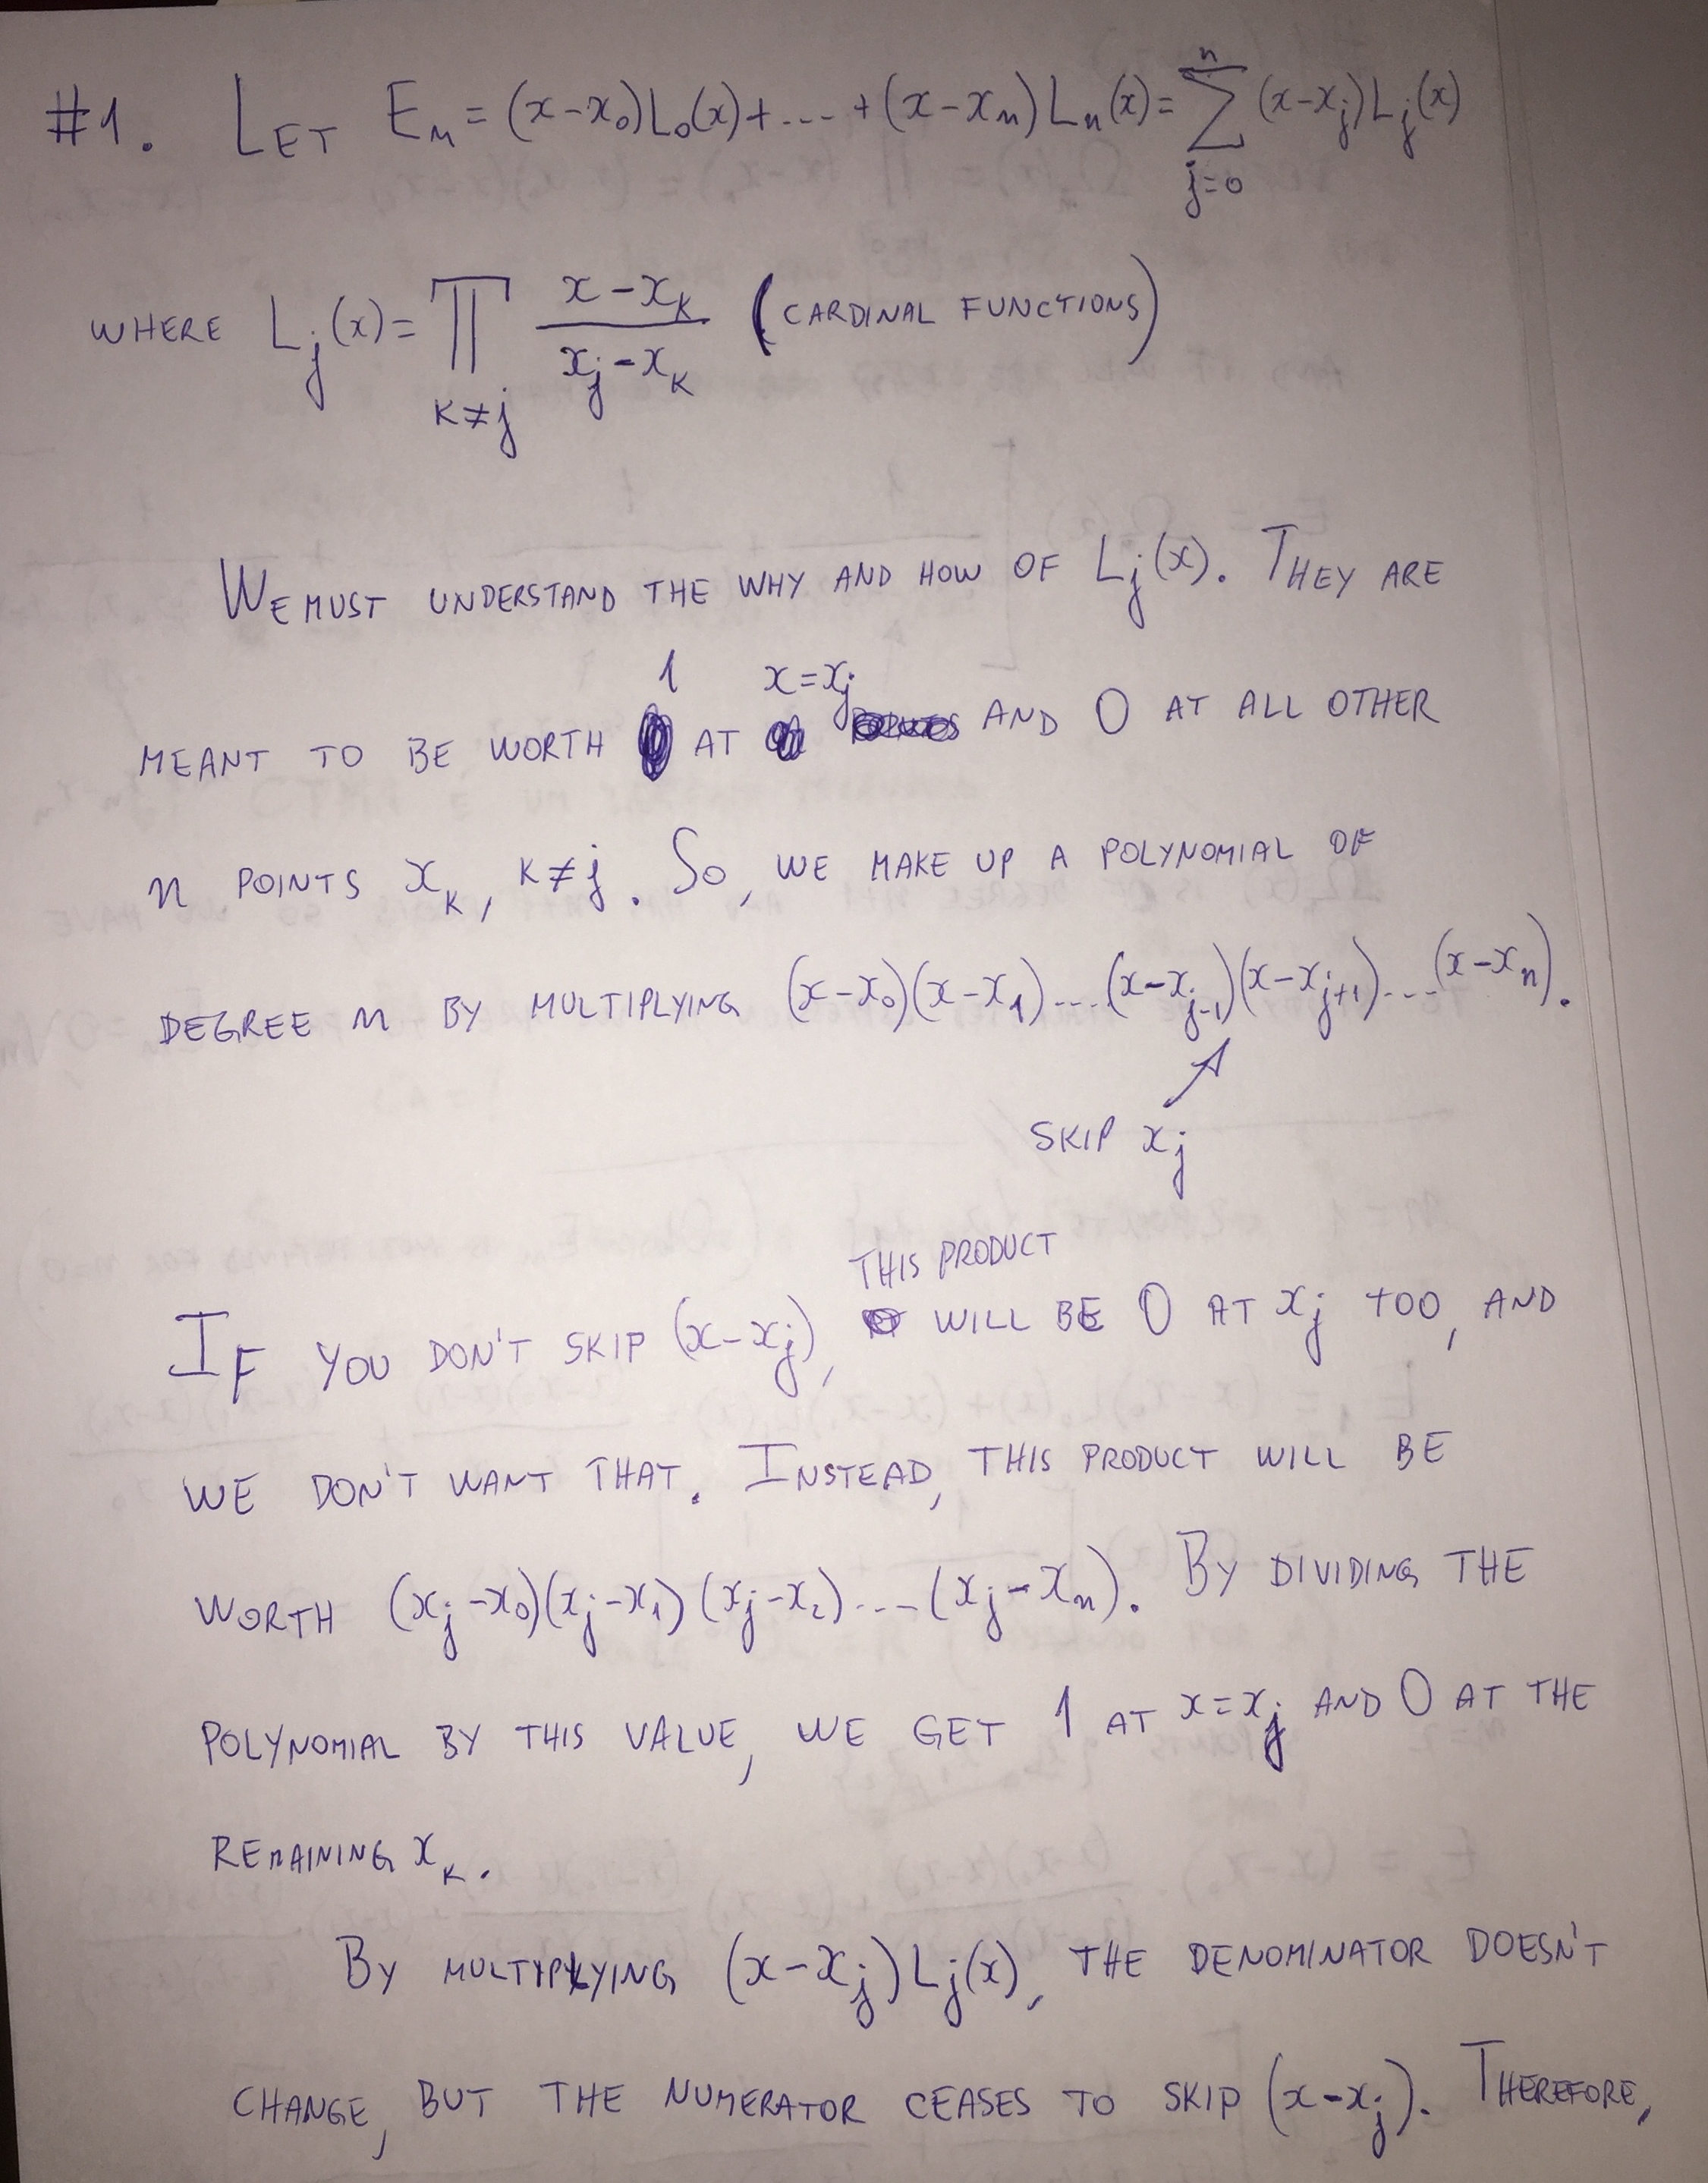 #1. LET Eₙ = (x-x₀)L₀(x)+...+(x-xₙ)Lₙ(x)= ∑ⱼ₌₀ⁿ (x-xⱼ)Lⱼ(x)
WHERE Lⱼ(x)= ∏ₖ≠ⱼ (x-xₖ)/(xⱼ-xₖ) (CARDINAL FUNCTIONS)
WE MUST UNDERSTAND THE WHY AND HOW OF Lⱼ(x). THEY ARE
MEANT TO BE WORTH 1 AT x=xⱼ AND 0 AT ALL OTHER
n POINTS xₖ, k≠j. SO, WE MAKE UP A POLYNOMIAL OF
DEGREE n BY MULTIPLYING (x-x₀)(x-x₁)...(x-xⱼ₋₁)(x-xⱼ₊₁)...(x-xₙ).
SKIP xⱼ
IF YOU DON'T SKIP (x-xⱼ), THIS PRODUCT WILL BE 0 AT xⱼ TOO, AND
WE DON'T WANT THAT. INSTEAD, THIS PRODUCT WILL BE
WORTH (xⱼ-x₀)(xⱼ-x₁)(xⱼ-x₂)...(xⱼ-xₙ). BY DIVIDING THE
POLYNOMIAL BY THIS VALUE, WE GET 1 AT x=xⱼ AND 0 AT THE
REMAINING xₖ.
BY MULTYPLYING (x-xⱼ)Lⱼ(x), THE DENOMINATOR DOESN'T
CHANGE, BUT THE NUMERATOR CEASES TO SKIP (x-xⱼ). THEREFORE,